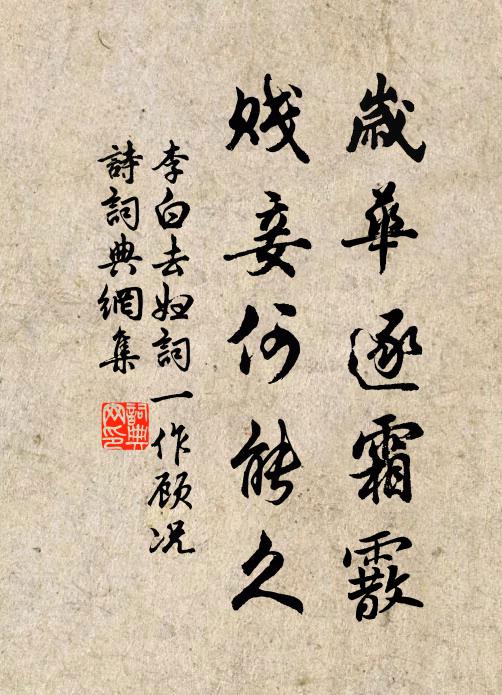 歲華逐霜霰
賤妾何能久
李白去婦詞一作顾况
詩詞典網集
詞典网印